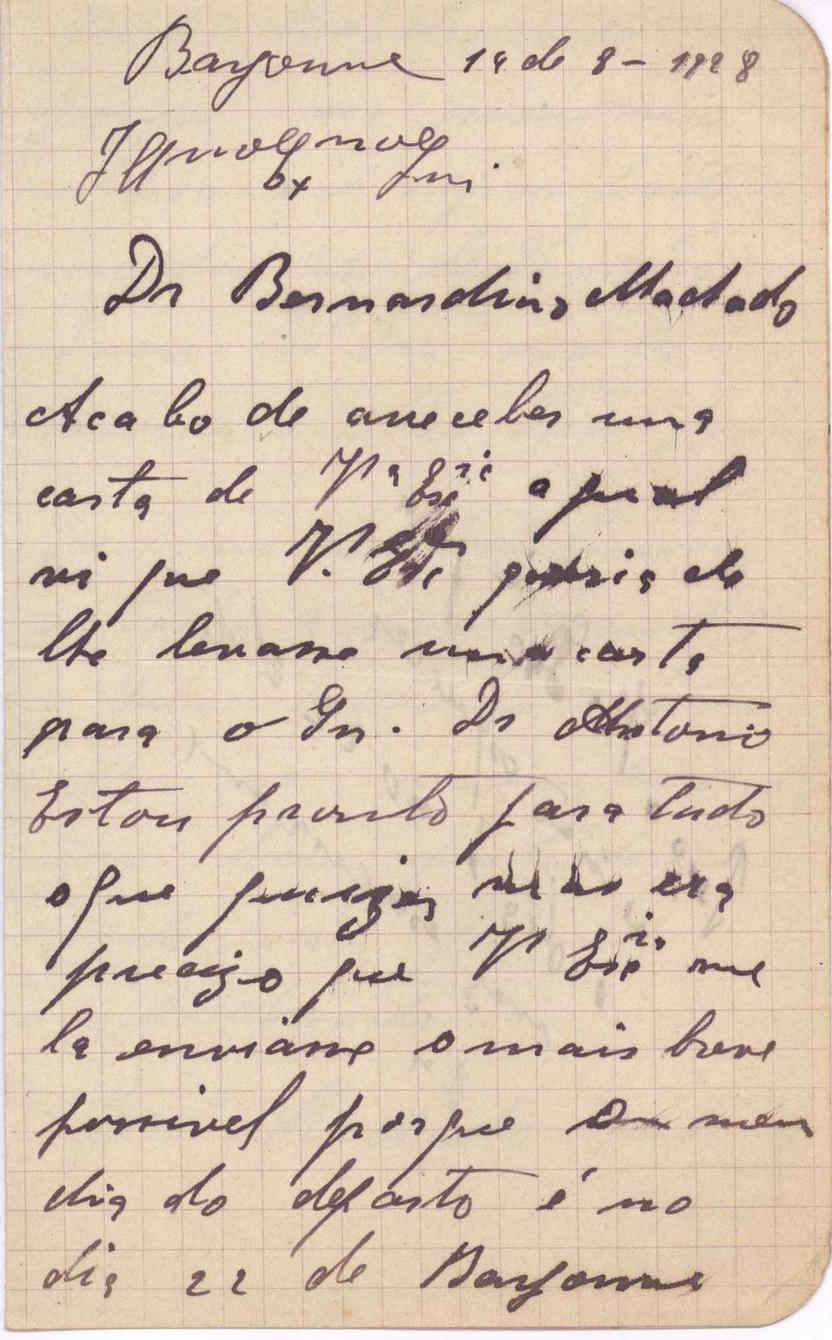 Bayonne 14 de 8 - 1928
Snr
Dr Bernardino Machado
Acabo de arreceber uma
carta de Vª Exciª a qual
vi que V. Exciª queria
lhe levasse uma carta
para o Snr. Dr Antonio
Estou pronto para tudo
o que queizer era
precizo que V Excia me
la enviásse o mais breve
possivel porque o meu
dia do departo é no
dia 22 de Bayonne